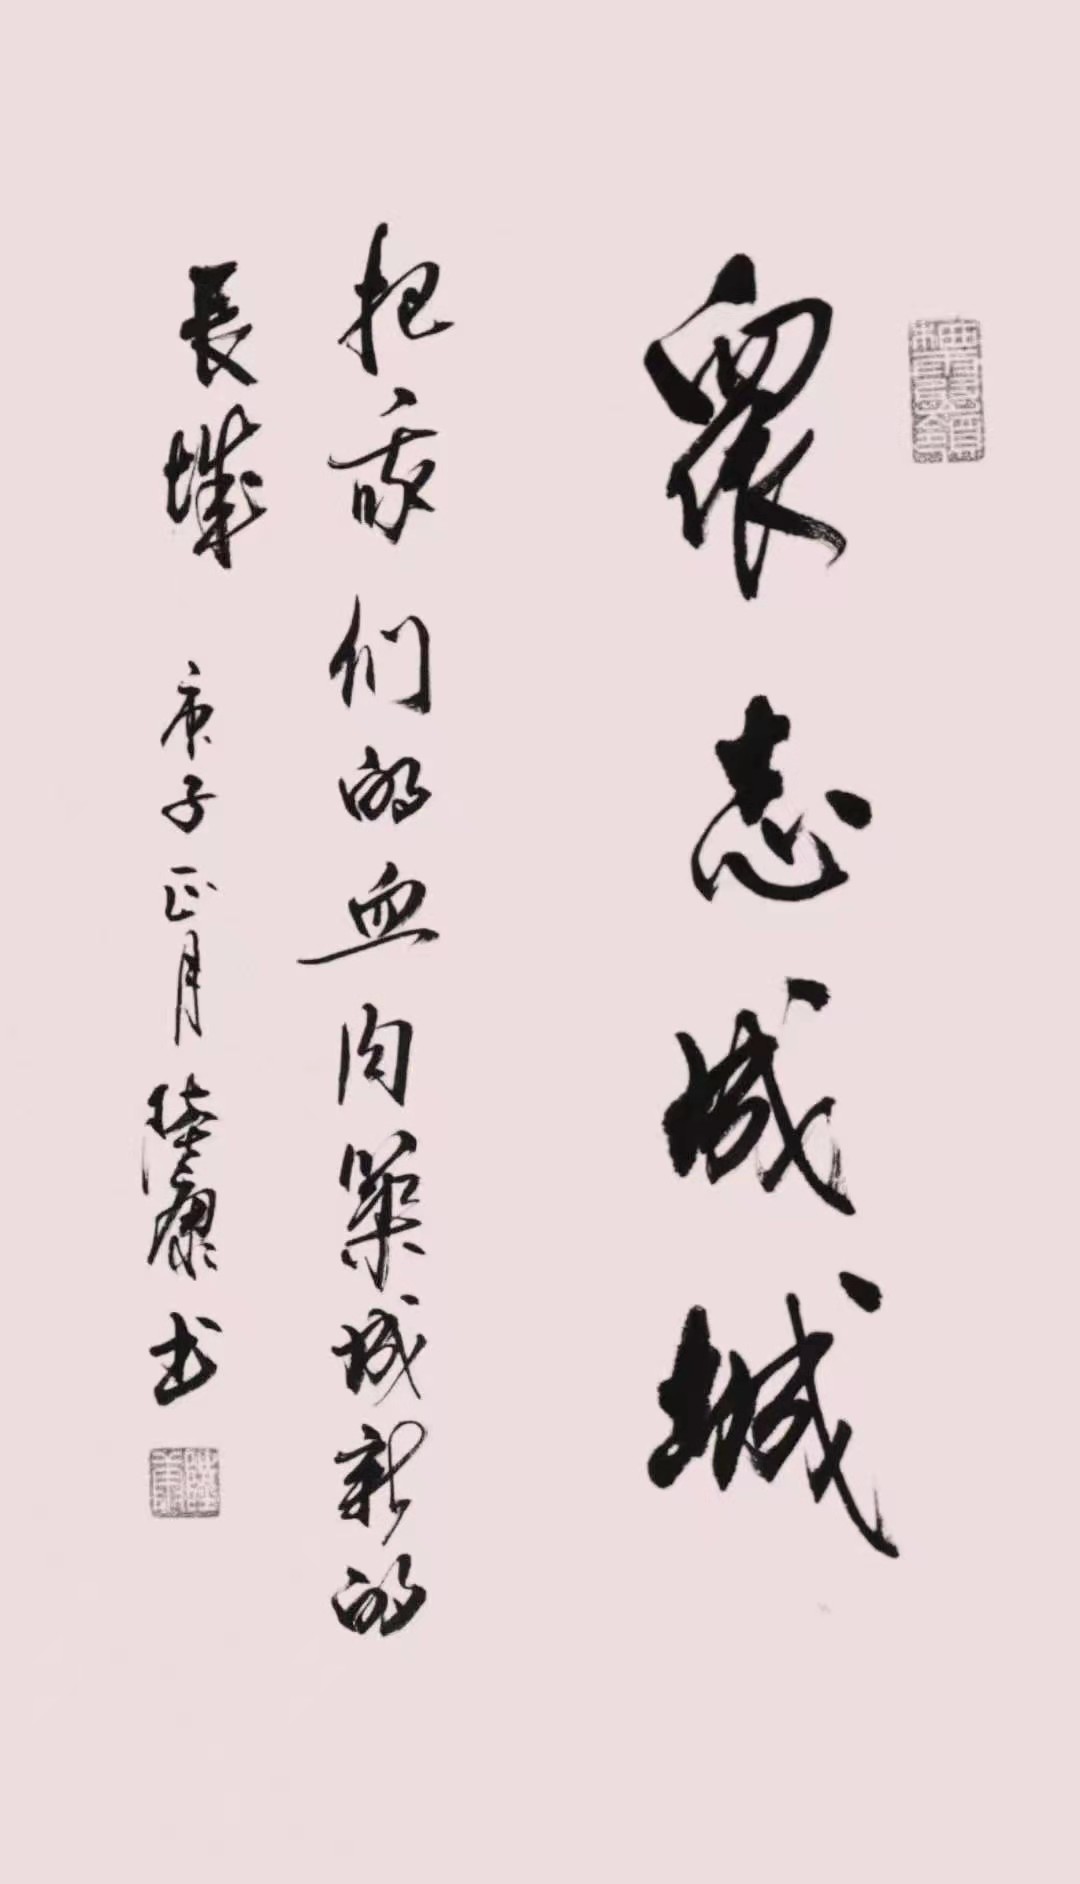 眾志成城
把我们的血肉築城新的
長城 庚子正月陸康书
陸康